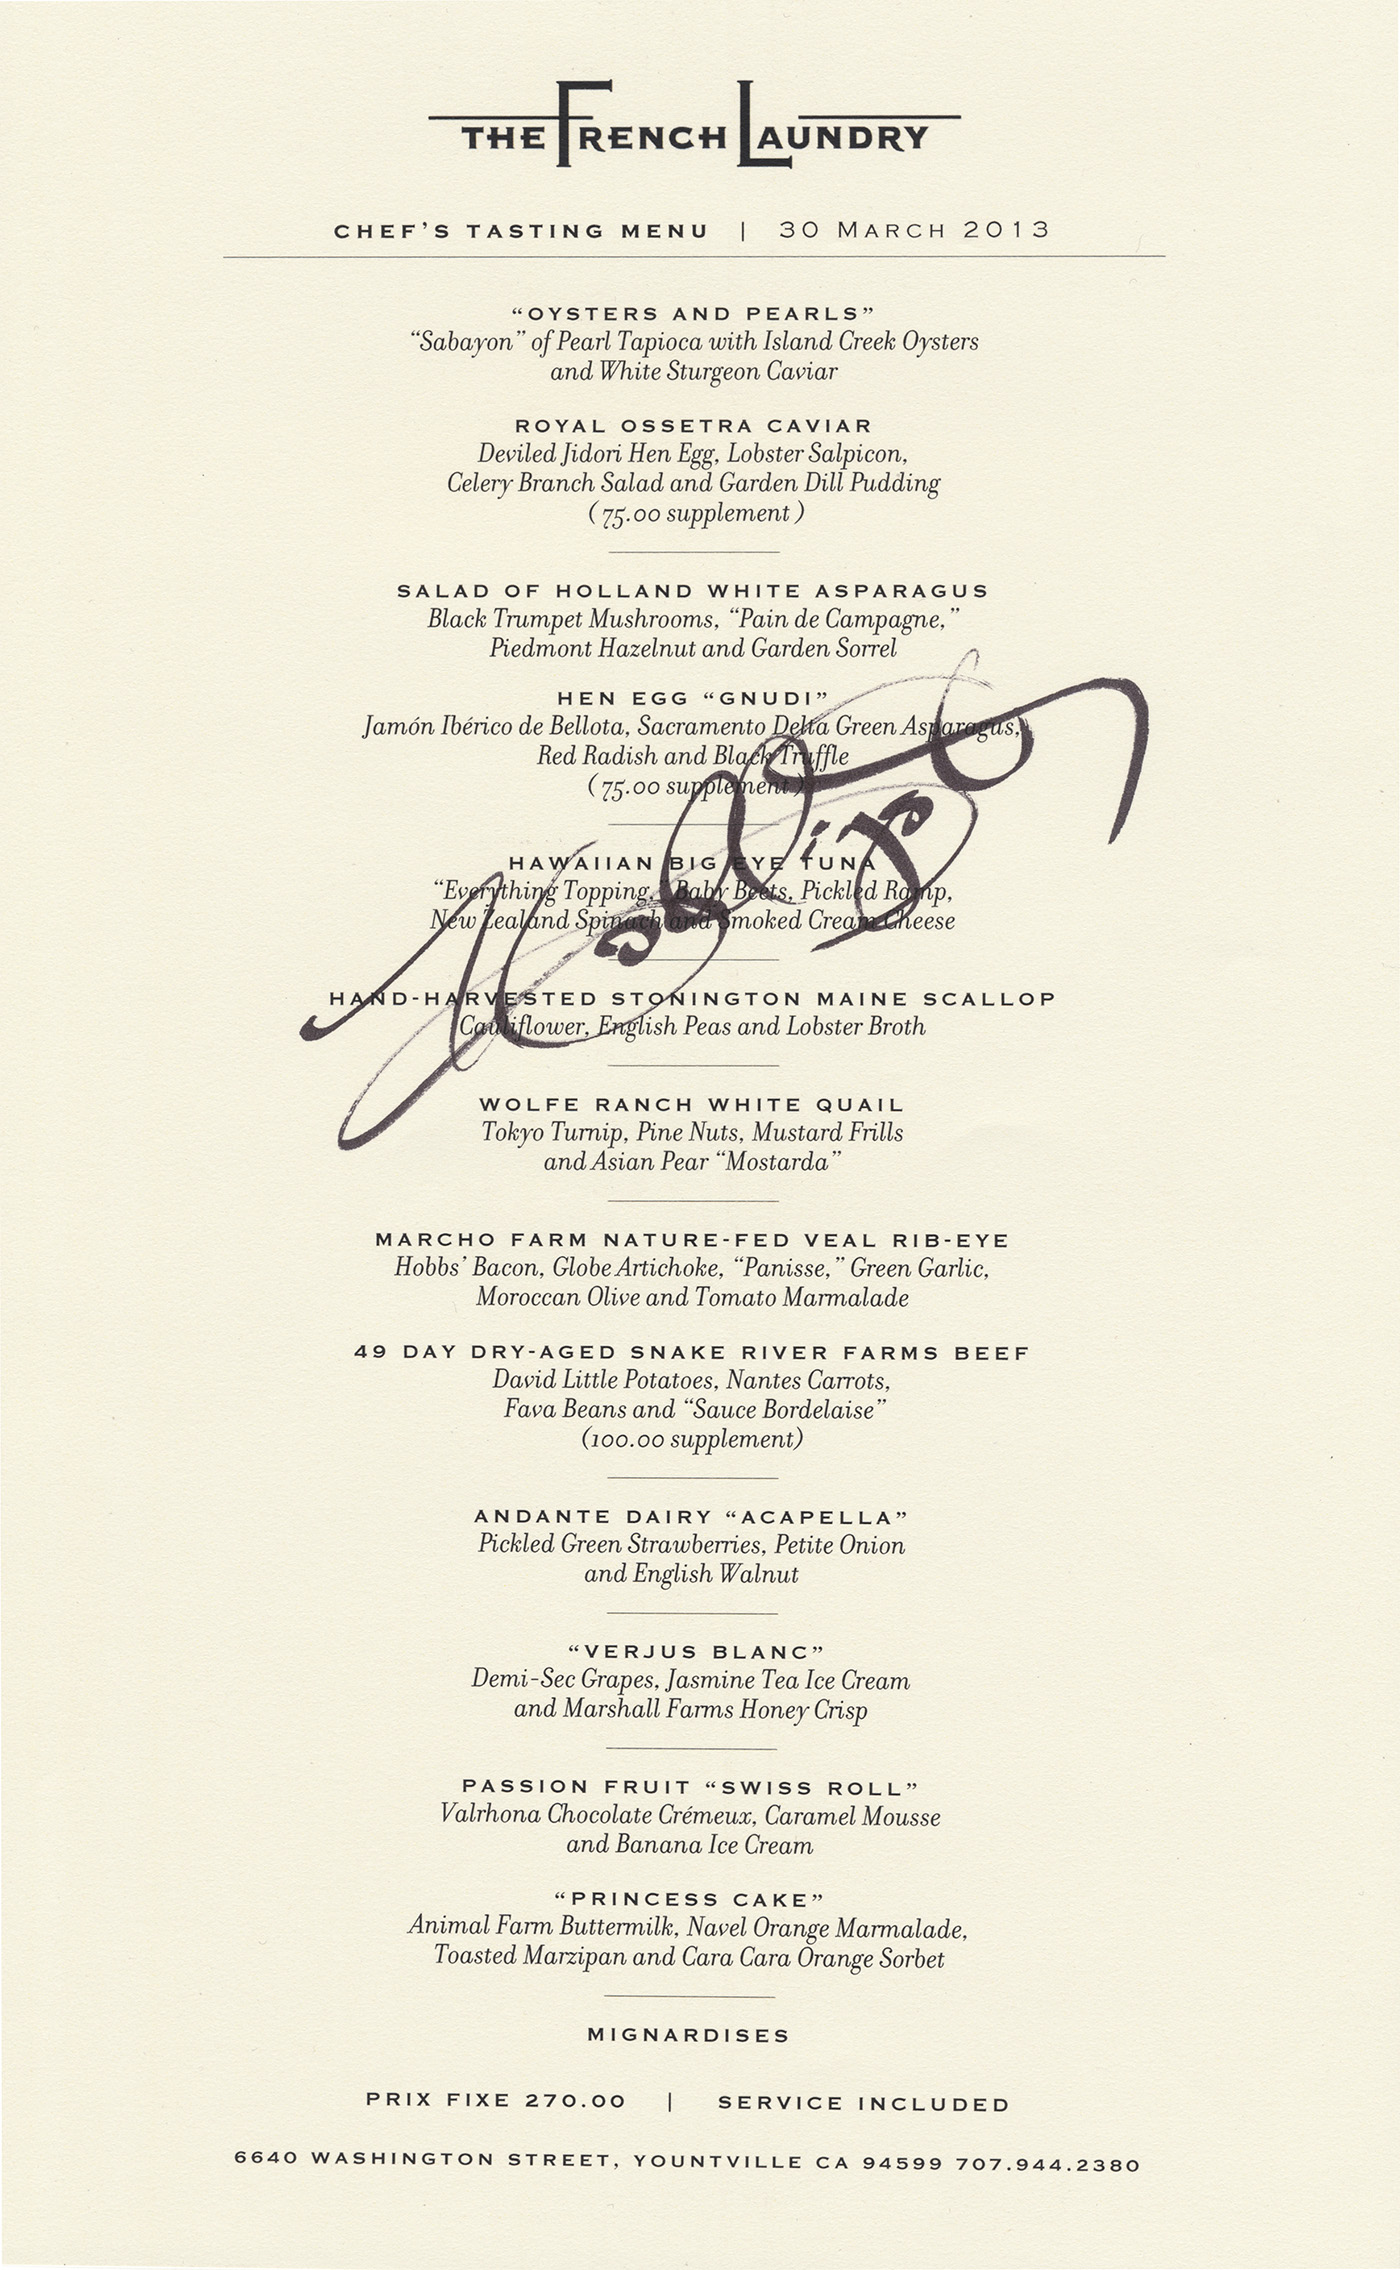 THE FRENCH LAUNDRY
CHEF'S TASTING MENU | 30 MARCH 2013
“OYSTERS AND PEARLS”
“Sabayon” of Pearl Tapioca with Island Creek Oysters
and White Sturgeon Caviar
ROYAL OSSETRA CAVIAR
Deviled Jidori Hen Egg, Lobster Salpicon,
Celery Branch Salad and Garden Dill Pudding
( 75.00 supplement )
SALAD OF HOLLAND WHITE ASPARAGUS
Black Trumpet Mushrooms, “Pain de Campagne,”
Piedmont Hazelnut and Garden Sorrel
HEN EGG “GNUDI”
Jamón Ibérico de Bellota, Sacramento Delta Green Asparagus,
Red Radish and Black Truffle
( 75.00 supplement )
HAWAIIAN BIG EYE TUNA
“Everything Topping,” Baby Beets, Pickled Ramp,
New Zealand Spinach and Smoked Cream Cheese
HAND-HARVESTED STONINGTON MAINE SCALLOP
Cauliflower, English Peas and Lobster Broth
WOLFE RANCH WHITE QUAIL
Tokyo Turnip, Pine Nuts, Mustard Frills
and Asian Pear “Mostarda”
MARCHO FARM NATURE-FED VEAL RIB-EYE
Hobbs’ Bacon, Globe Artichoke, “Panisse,” Green Garlic,
Moroccan Olive and Tomato Marmalade
49 DAY DRY-AGED SNAKE RIVER FARMS BEEF
David Little Potatoes, Nantes Carrots,
Fava Beans and “Sauce Bordelaise”
(100.00 supplement)
ANDANTE DAIRY “ACAPELLA”
Pickled Green Strawberries, Petite Onion
and English Walnut
“VERJUS BLANC”
Demi-Sec Grapes, Jasmine Tea Ice Cream
and Marshall Farms Honey Crisp
PASSION FRUIT “SWISS ROLL”
Valrhona Chocolate Crémeux, Caramel Mousse
and Banana Ice Cream
“PRINCESS CAKE”
Animal Farm Buttermilk, Navel Orange Marmalade,
Toasted Marzipan and Cara Cara Orange Sorbet
MIGNARDISES
PRIX FIXE 270.00 | SERVICE INCLUDED
6640 WASHINGTON STREET, YOUNTVILLE CA 94599 707.944.2380